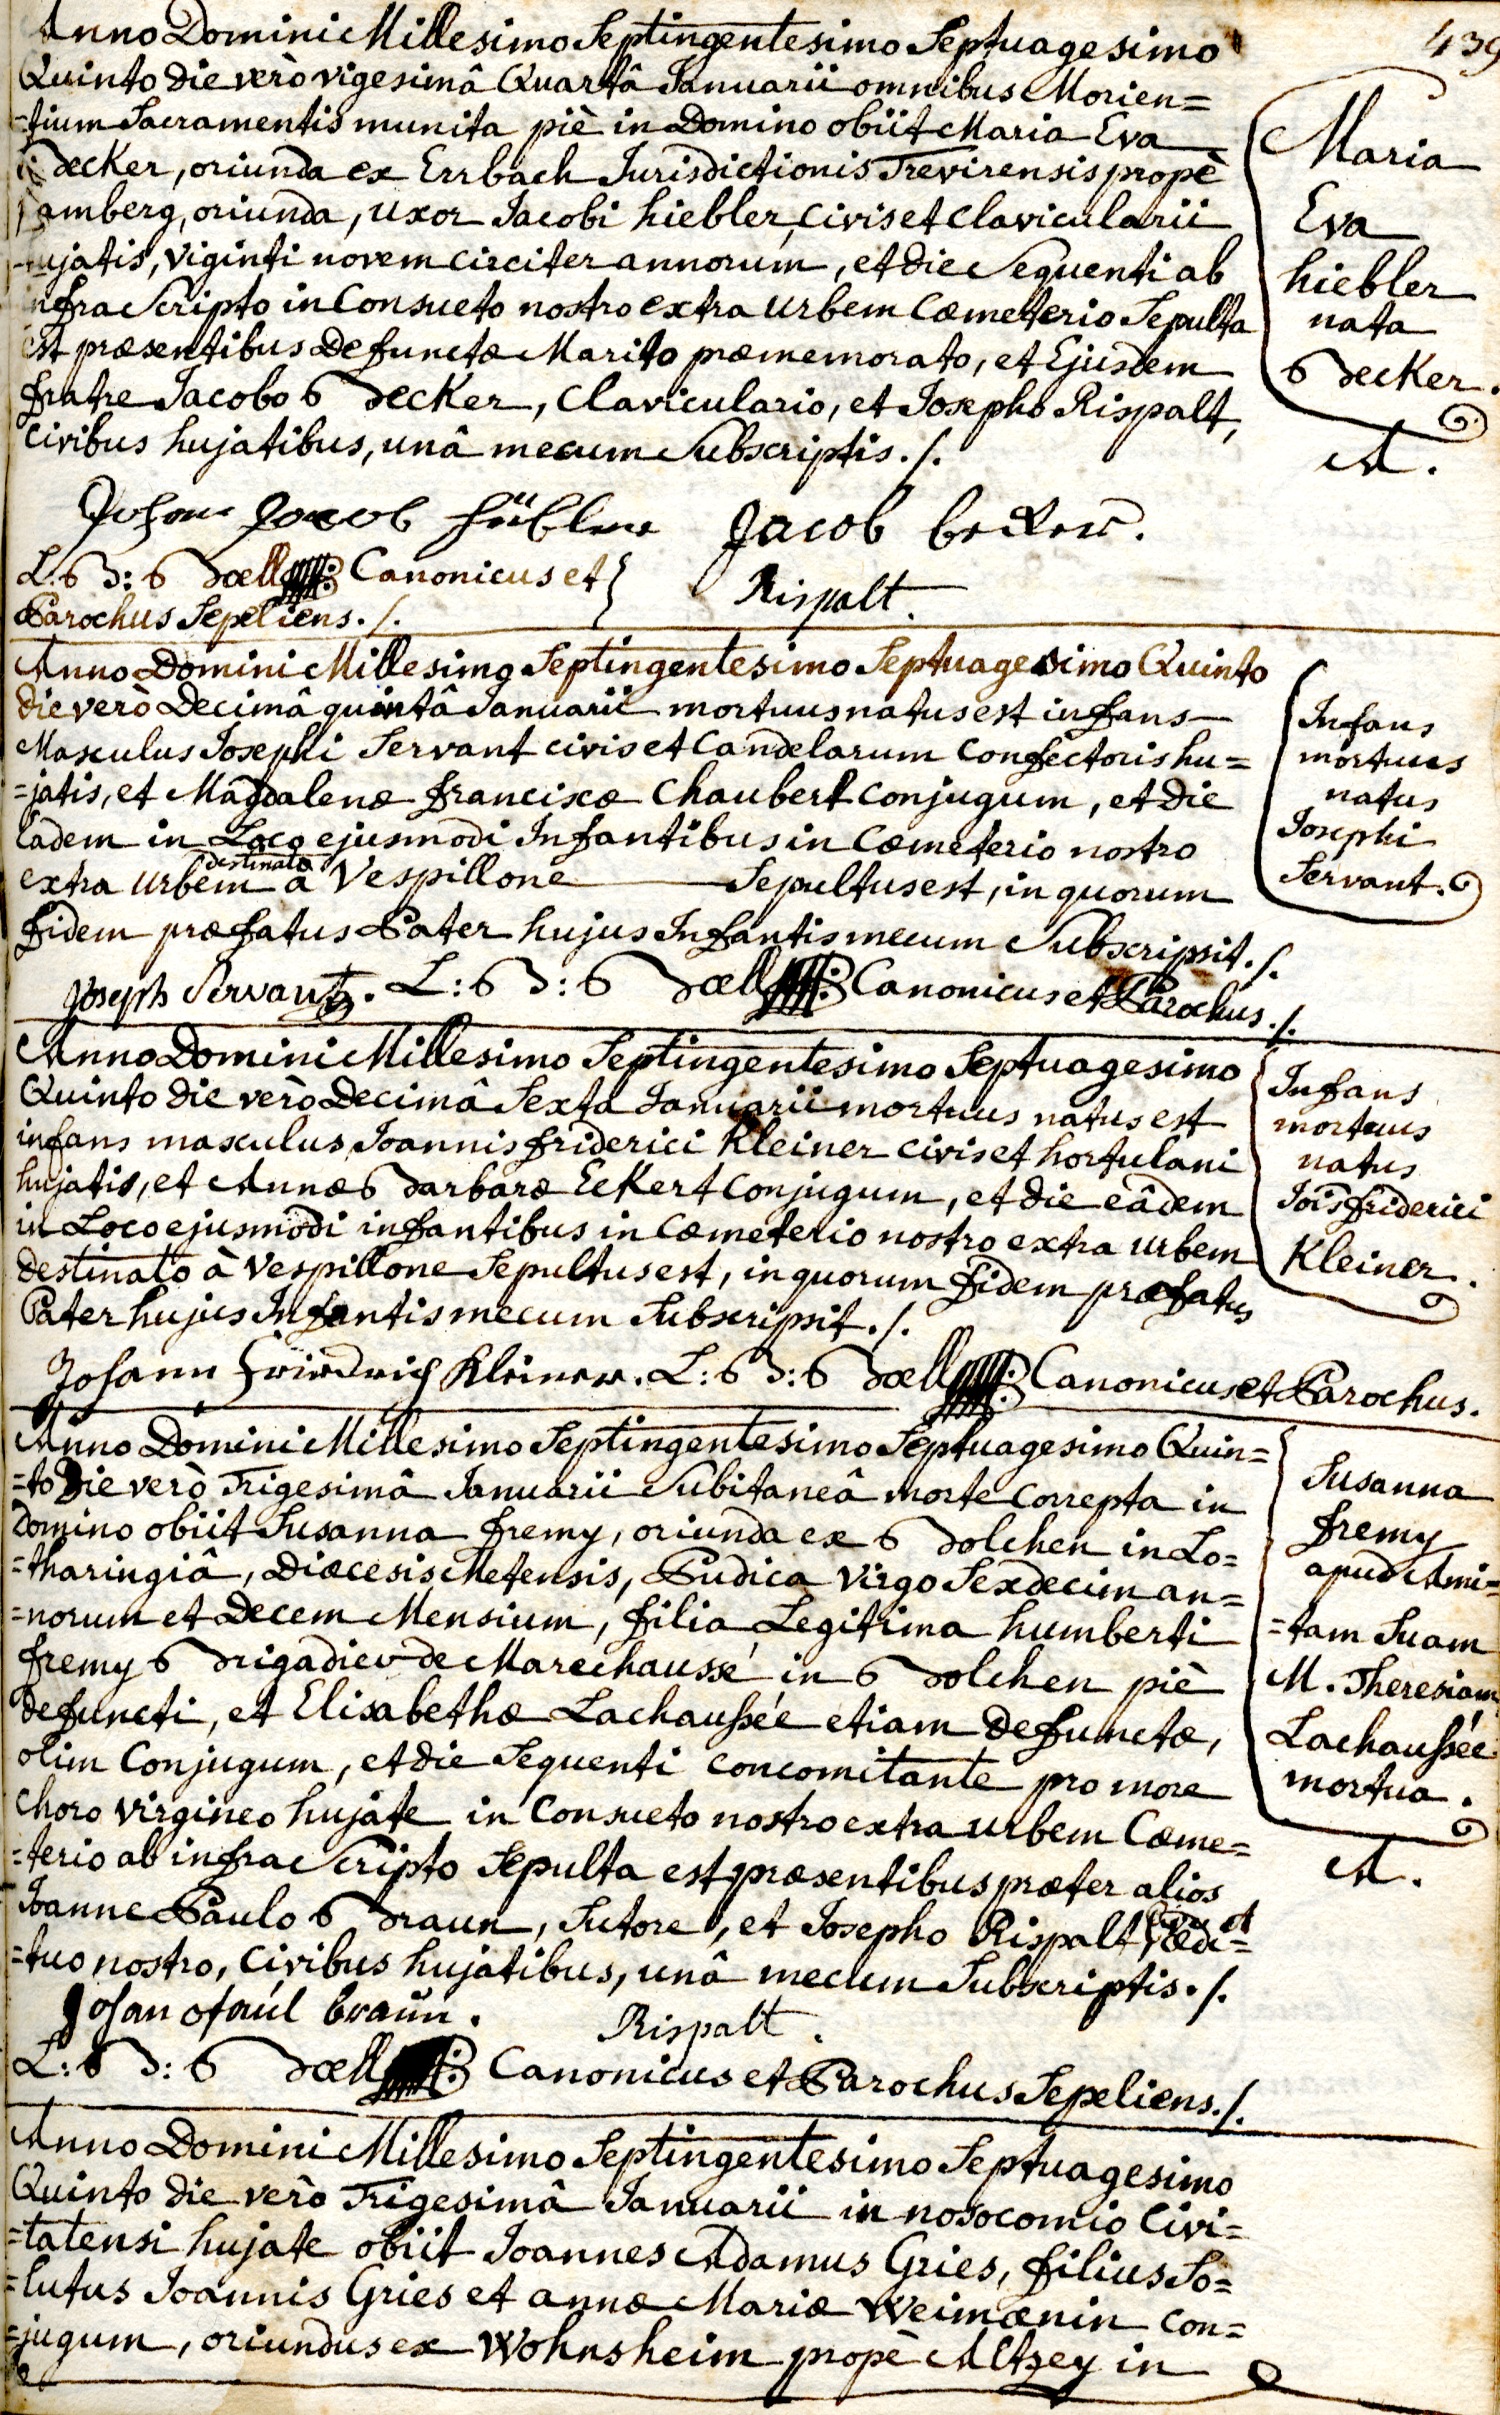 439
Anno Domini Millesimo Septingentesimo Septuagesimo
Quinto die verò vigesimâ Quartâ Januarii omnibus Morien=
=tium Sacramentis munita piè in Domino obiit Maria Eva
Becker, oriunda ex Errbach Jurisdictionis Trevirensis propè
Camberg, oriunda, uxor Jacobi hiebler, civis et clavicularii
hujatis, viginti novem circiter annorum, et die Sequenti ab
infra Scripto in Consueto nostro extra urbem Cœmeterio Sepulta
est præsentibus Defunctæ Marito præmemorato, et Ejusdem
fratre Jacobo Becker, Claviculario, et Josepho Rispalt,
Civibus hujatibus, unâ mecum Subscriptis ./.
Maria
Eva
hiebler
nata
Becker.
A.
Johann Jacob hübler Jacob becker.
L: B: Bœll Canonicus et
Parochus Sepeliens ./.
Rispalt.
Anno Domini Millesimo Septingentesimo Septuagesimo Quinto
die verò Decimâ quintâ Januarii mortuus natus est infans
Masculus Josephi Servant civis et Candelarum confectoris hu=
=jatis, et Magdalenæ franciscæ Chaubert conjugum, et die
Eadem in Loco ejusmodi Infantibus in Cœmeterio nostro
extra urbem destinato à Vespillone Sepultus est, in quorum
fidem præfatus Pater hujus Infantis mecum Subscripsit ./.
Infans
mortuus
natus
Josephi
Servant.
Joseph Servant. L: B: Bœll Canonicus et Parochus ./.
Anno Domini Millesimo Septingentesimo Septuagesimo
Quinto die verò Decimâ Sexta Januarii mortuus natus est
infans masculus Joannis friderici Kleiner civis et hortulani
hujatis, et Annæ Barbaræ Eckert conjugum, et die eâdem
in Loco ejusmodi infantibus in Cœmeterio nostro extra urbem
destinato à Vespillone Sepultus est, in quorum fidem præfatus
Pater hujus Infantis mecum Subscripsit ./.
Infans
mortuus
natus
Jois friderici
Kleiner.
Johann Friedrich Kleiner. L: B: Bœll Canonicus et Parochus.
Anno Domini Millesimo Septingentesimo Septuagesimo Quin=
=to Die verò Trigesimâ Januarii Subitaneâ morte correpta in
Domino obiit Susanna fremy, oriunda ex Bolchen in Lo=
=tharingiâ, Diœcesis Metensis, Pudica Virgo Sexdecim an=
=norum et Decem Mensium, filia Legitima humberti
fremy Brigadier de Marechaussé in Bolchen piè
defuncti, et Elisabethæ Lachaussée etiam Defunctæ,
olim Conjugum, et die Sequenti concomitante pro more
choro virgineo hujate in Consueto nostro extra urbem Cœme=
=terio ab infra Scripto Sepulta est præsentibus præter alios
Joanne Paulo Braun, Sutore, et Josepho Rispalt, Ædi=
=tuo nostro, Civibus hujatibus, unâ mecum Subscriptis ./.
Susanna
fremy
apud Ami=
=tam Suam
M. Theresiam
Lachaussée
mortua.
A.
Johan Paul braun. Rispalt.
L: B: Bœll Canonicus et Parochus Sepeliens ./.
Anno Domini Millesimo Septingentesimo Septuagesimo
Quinto die verò Trigesimâ Januarii in nosocomio Civi=
=tatensi hujate obiit Joannes Adamus Gries, filius So=
=lutus Joannis Gries et annæ Mariæ Weimænin con=
=jugum, oriundus ex Wohnsheim propè Altzey in